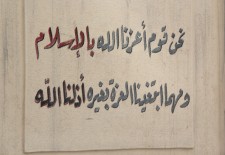 نحن قوم أعزنا الله بالإسلام
ومهما ابتغينا العزة بغيره أذلنا الله